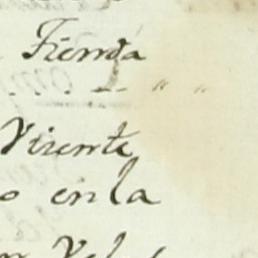 Tienda
— " "
Vicente
o en la